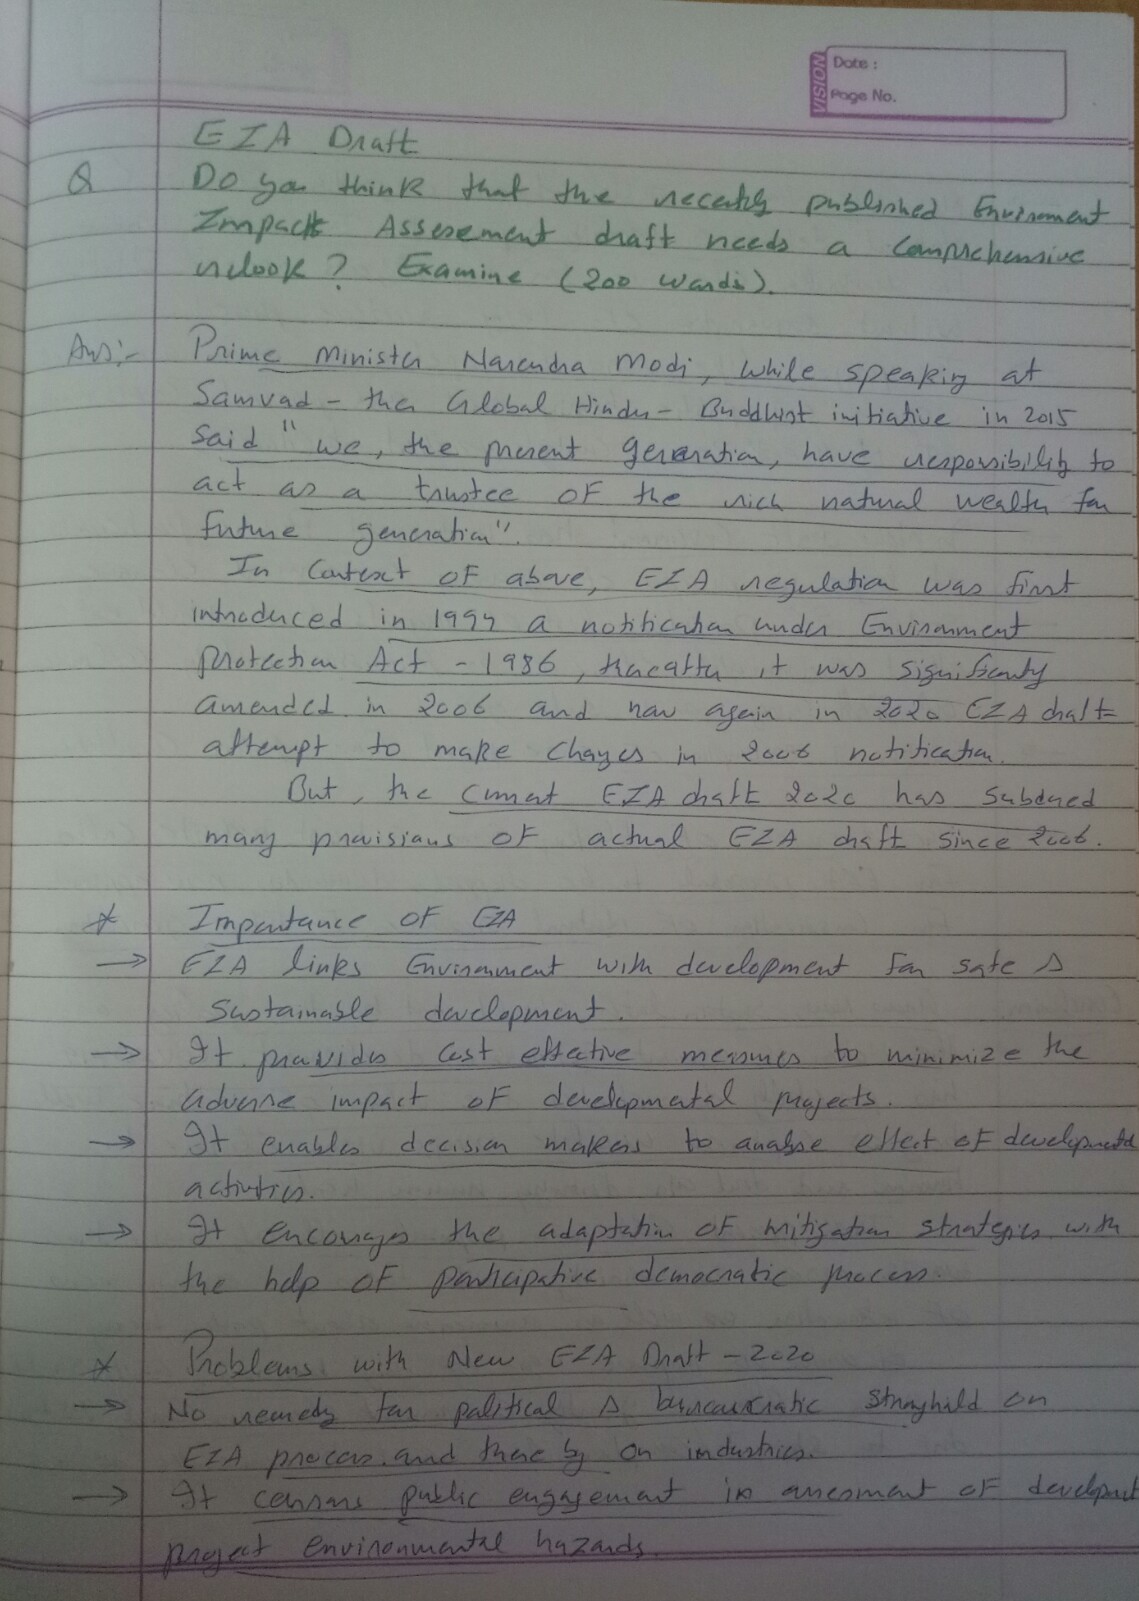 VISION
Date :
Page No.
EIA Draft
Q Do you think that the recently published Environment
Impact Assesement draft needs a Comprehensive
relook ? Examine (200 words).
Ans:- Prime Minister Narendra Modi, while speaking at
Samvad - the Global Hindu - Buddhist initiative in 2015
said " we, the present generation, have responsibility to
act as a trustee of the rich natural wealth for
future generation".
In Context of above, EIA regulation was first
introduced in 1994 a notification under Environment
Protection Act - 1986, thereafter it was significantly
amended in 2006 and now again in 2020 EIA draft
attempt to make changes in 2006 notification.
But, the current EIA draft 2020 has subdued
many provisions of actual EIA draft since 2006.
* Importance of EIA
→ EIA links Environment with development for safe &
sustainable development.
→ It provides cost effective measures to minimize the
adverse impact of developmental projects.
→ It enables decision makers to analyse effect of developmental
activities.
→ It encourages the adaptation of mitigation strategies with
the help of participative democratic process.
* Problems with New EIA Draft - 2020
→ No remedy for political & bureaucratic stronghold on
EIA process and there by on industries.
→ It censors public engagement in assesment of development
project environmental hazards.